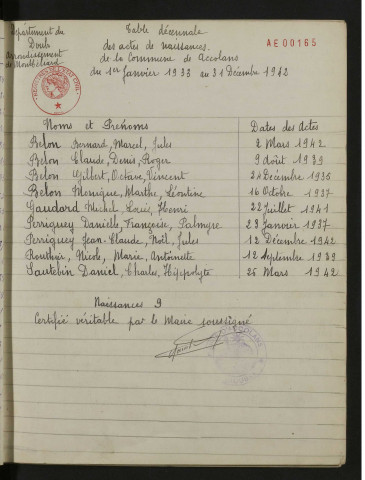 Département du
Doubs
Arrondissement
de Montbéliard
Table décennale
des actes de naissances.
de la Commune de Accolans
du 1er Janvier 1933 au 31 Décembre 1942
AE00165
Noms et Prénoms Dates des Actes
Belon Bernard, Marcel, Jules 2 Mars 1942
Belon Claude, Denis, Roger 9 août 1939
Belon Gilbert, Octave, Vincent 24 Décembre 1936
Belon Monique, Marthe, Léontine 16 Octobre 1937
Gaudard Michel, Louis, Henri 22 Juillet 1941
Perriguey Danielle, Françoise, Palmyre 23 Janvier 1937
Perriguey Jean-Claude, Noël, Jules 12 Décembre 1942
Nicole, Marie, Antoinette 12 Septembre 1939
Sautebin Daniel, Charles, Hippolyte 25 Mars 1942
Naissances 9
Certifié véritable par le Maire soussigné